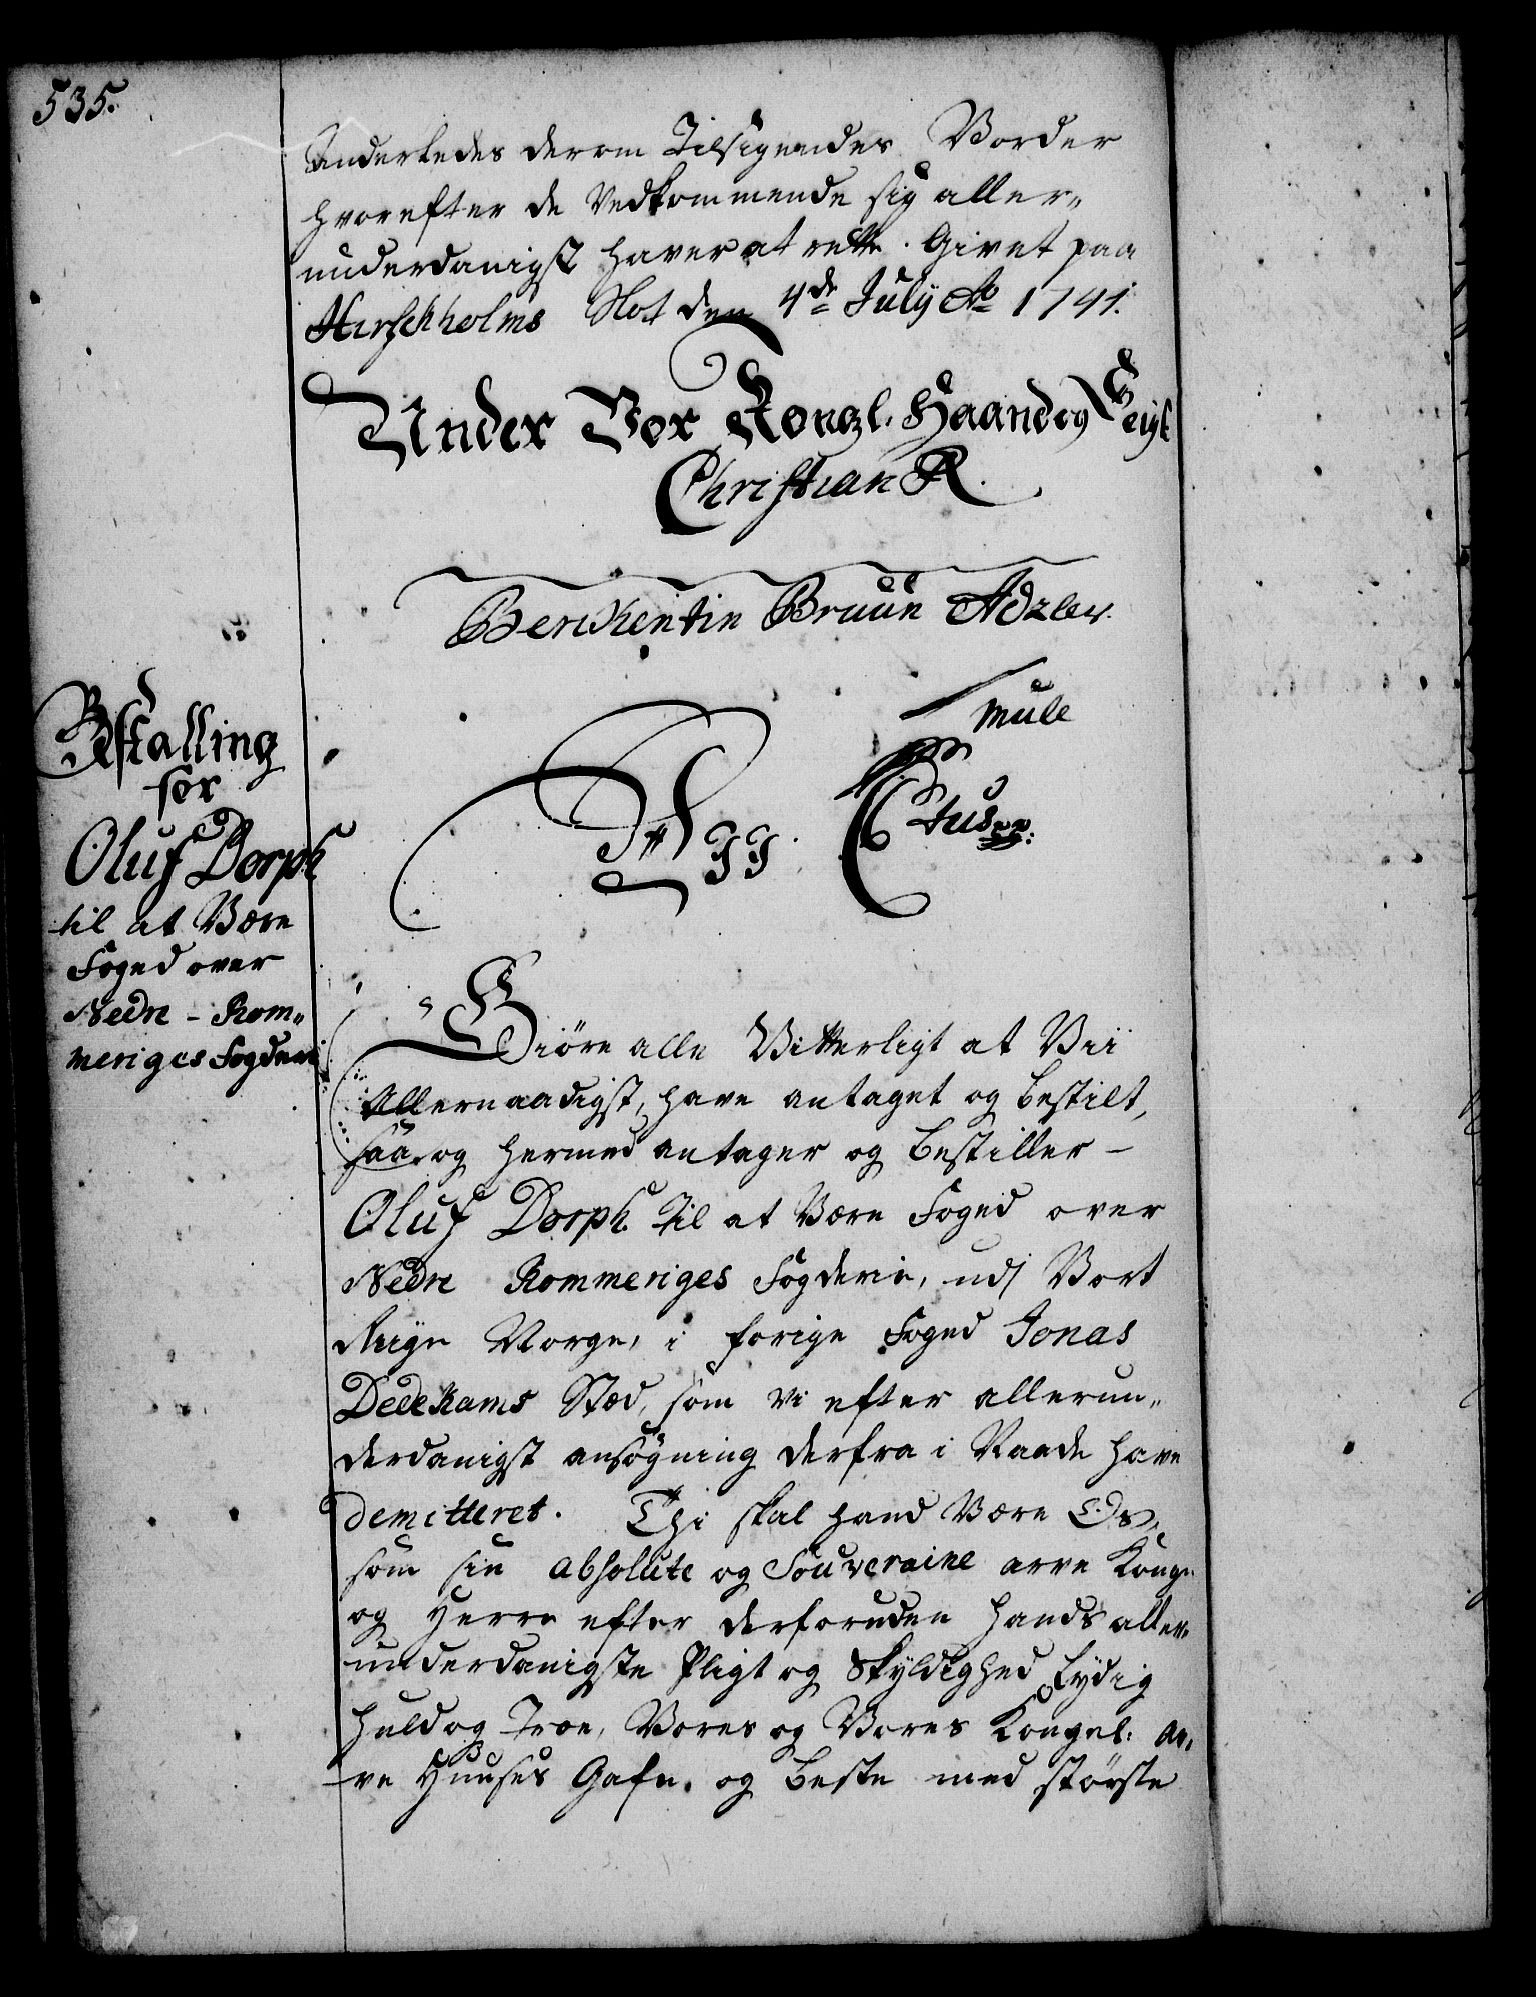 535.
Anderledes derom Tilsigendes Vorder
hvorefter de Vedkommende sig aller„
underdanigst haver at rette. Givet paa
Hirschholms Slot den 4de July Ao 1741.
Under Vor Kongl. Haand og Seigl
Christian R.
Berckentin Bruun Adzler.
Mule
C Tusen
Bestalling
for
Oluf Dorph
til at Være
Foged over
Nedre - Rom„
meriges Fogderi
Giöre alle Vitterligt at Vii
Allernaadigst, have antaget og bestilt,
saa og hermed antager og bestiller -
Oluf Dorph. til at Være Foged over
Nedre Rommeriges Fogderie, udj Vort
Riige Norge, i forige Foged Jonas
Dedekams Stæd, som vi efter allerun„
derdanigst ansögning derfra i Naade have
demitteret. Thi skal hand Være Os,
som sin absolute og Souveraine arve Konge
og Herre efter derforuden Hands aller„
underdanigste Pligt og Skyldighed lydig
huld og Troe, Vores og Vores Kongel: Ar„
ve Huuses Gafn, og beste med störste